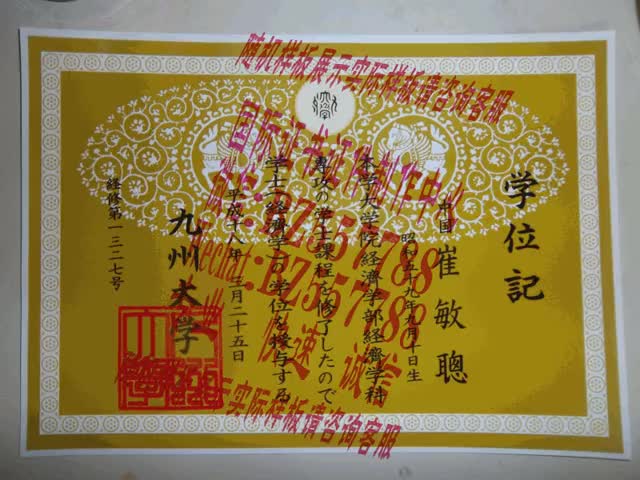 随机样板展示实际样板请咨询客服
学位記
中国 崔敏聰
昭和五十九年九月十日生
本学大学院経済学部経済学科
専攻の学士課程を修了したので
学士(経済学)の学位を授与する
平成十八年 三月二十五日
九州大学
経修第一三二七号
国际证书证件制作中心
快速 诚信
示实际样板请咨询客服